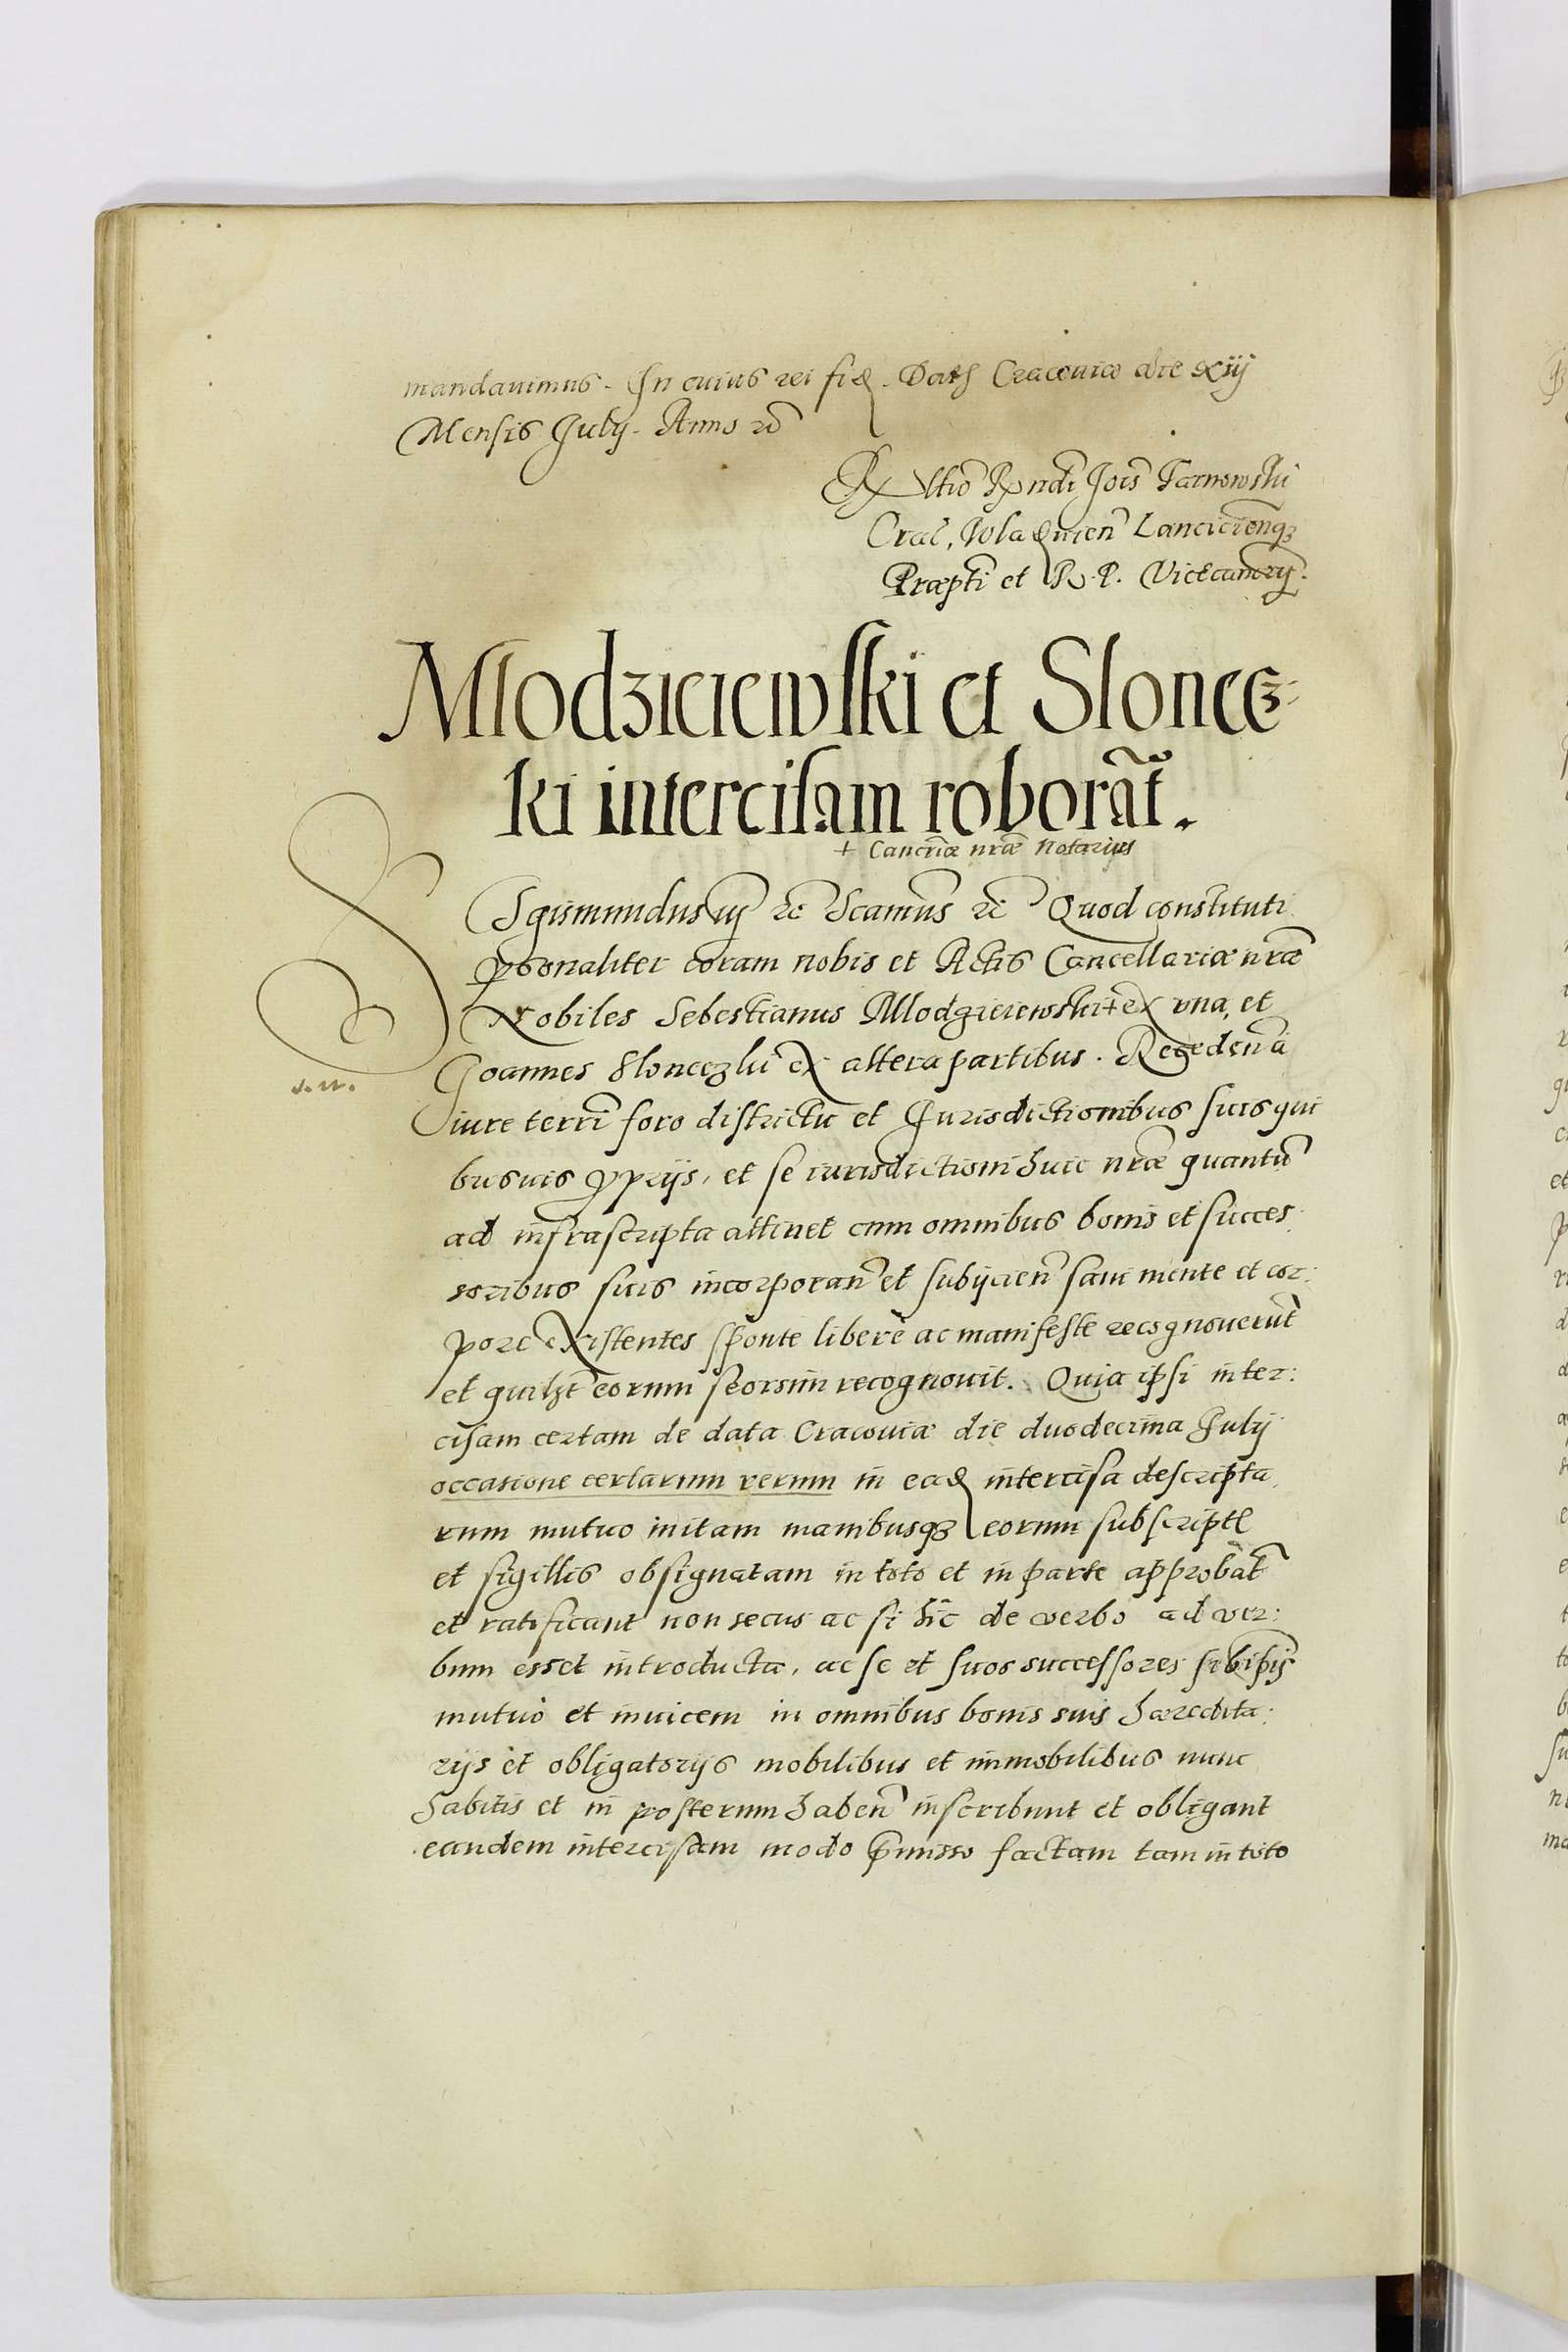 mandauimus. In cuius rei fid. Dat Cracouiæ die xiij
Mensis Julij. Anno zc
Ex Rltio Rxndi Jois Tarnowski
Cral, Wladuien Lanciciensq3
Præpti et R. P. Vicecanrij.
Młodzieiewski et Slonecz-
ki intercisam roborāt.
+ Cancriæ nræ Notarius
Sgismundus iij zc Scamus zc Quod constituti
psonaliter coram nobis et Actis Cancellariæ nræ
Nobiles Sebestianus Mlodzieiewski + ex una, et
Joannes Sloneczki ex altera partibus. Recedena
iure terri foro districtu et Jurisdictionibus suis qui
busuis pprijs, et se iurisdictioni huic nræ quantū
ad infrascripta attinet cum omnibus bonis et succes:
soribus suis incorporan et subijcien sani mente et cor:
pore existentes sponte liberè ac manifeste recognouerūt
et quilzt eorum seorsim recognouit. Quia ipsi inter:
cisam certam de data Cracouiæ die duodecima Julij
s. n.
occasione certarum rerum in ead intercisa descripta
rum mutuo initam manibusq3 eorum subscript
et sigillis obsignatam in toto et in parte approbāt
et ratificant non secus ac si hic de verbo ad ver:
bum esset introducta, ac se et suos successores sibiipis
mutuò et inuicem in omnibus bonis suis hæredita:
rijs et obligatorijs mobilibus et immobilibus nunc
habitis et in posterum haben inscribunt et obligant
eandem intercisam modo pmisso factam tam in toto